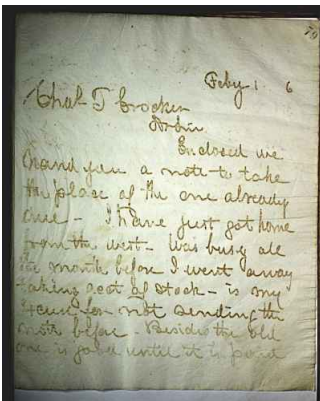 79
Feby 1 6
Chas T Crocker
Enclosed we
hand you a note to take
the place of the one already
due - I have just got home
from the west - was busy all
the month before I went away
taking acct of stock - is my
excuse for not sending the
note before - Besides the old
one is good until it is paid